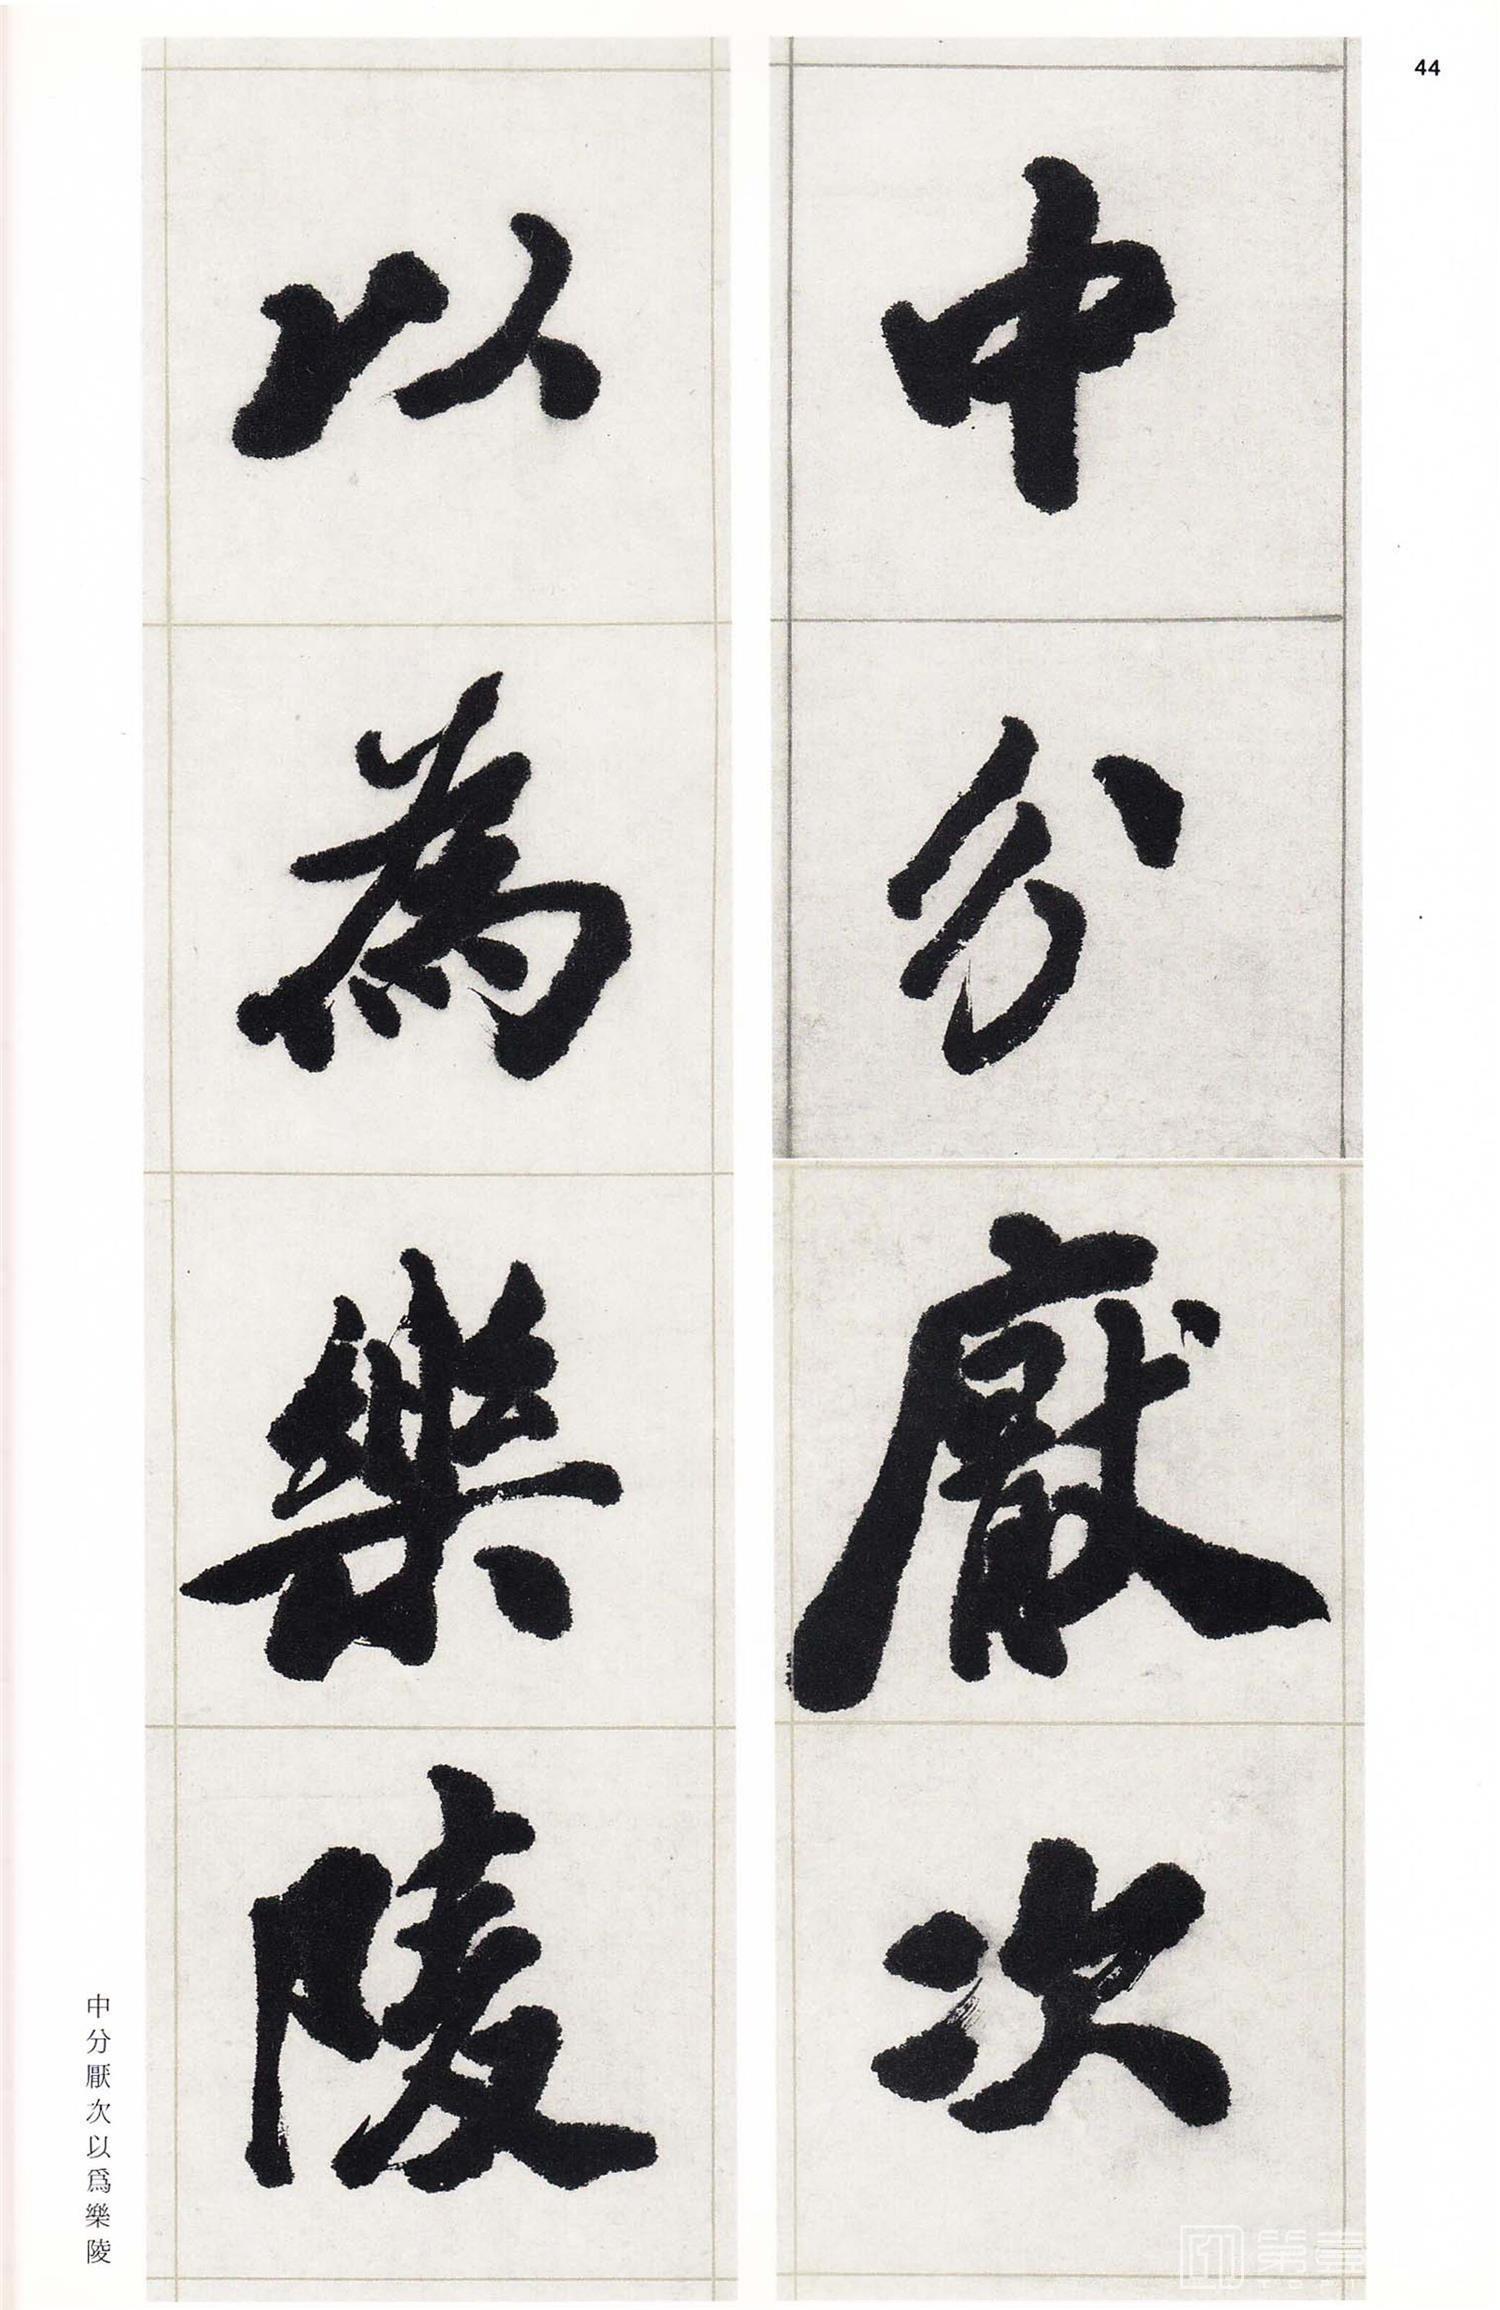 44
中分厭次
以為樂陵
中分厭次以爲樂陵
第壹